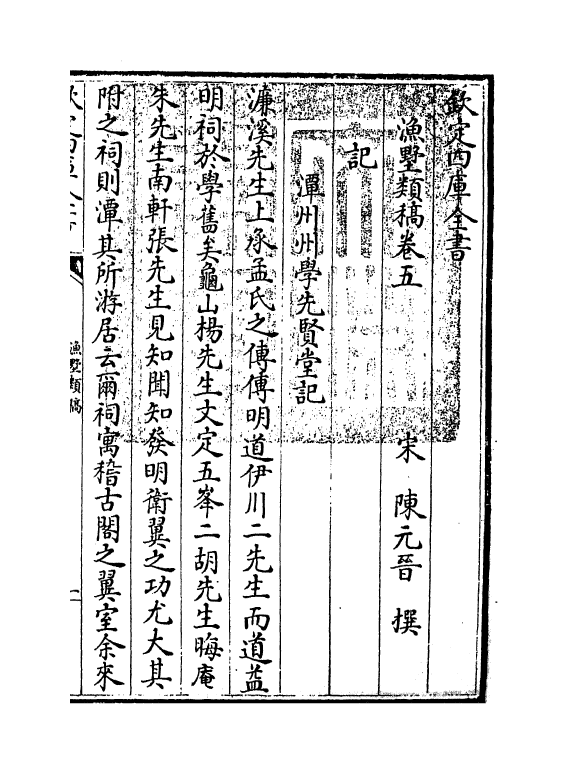 欽定四庫全書
漁墅類稿卷五
宋 陳元晉 撰
記
潭州州學先賢堂記
濂溪先生上承孟氏之傳傳明道伊川二先生而道益
明祠於學舊矣龜山楊先生文定五峯二胡先生晦庵
朱先生南軒張先生見知聞知發明衛翼之功尤大其
附之祠則潭其所游居云爾祠寓稽古閣之翼室余來
漁墅類稿
一